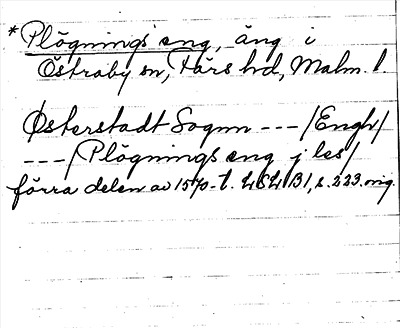 *Plögnings eng, äng i
Östraby sn, Färs hd, Malm. l.
Østerstadt Sognn --- /Engh/
--- /Plögnings eng j les/
förra delen av 1570-t. LSLB1, s. 223. orig.